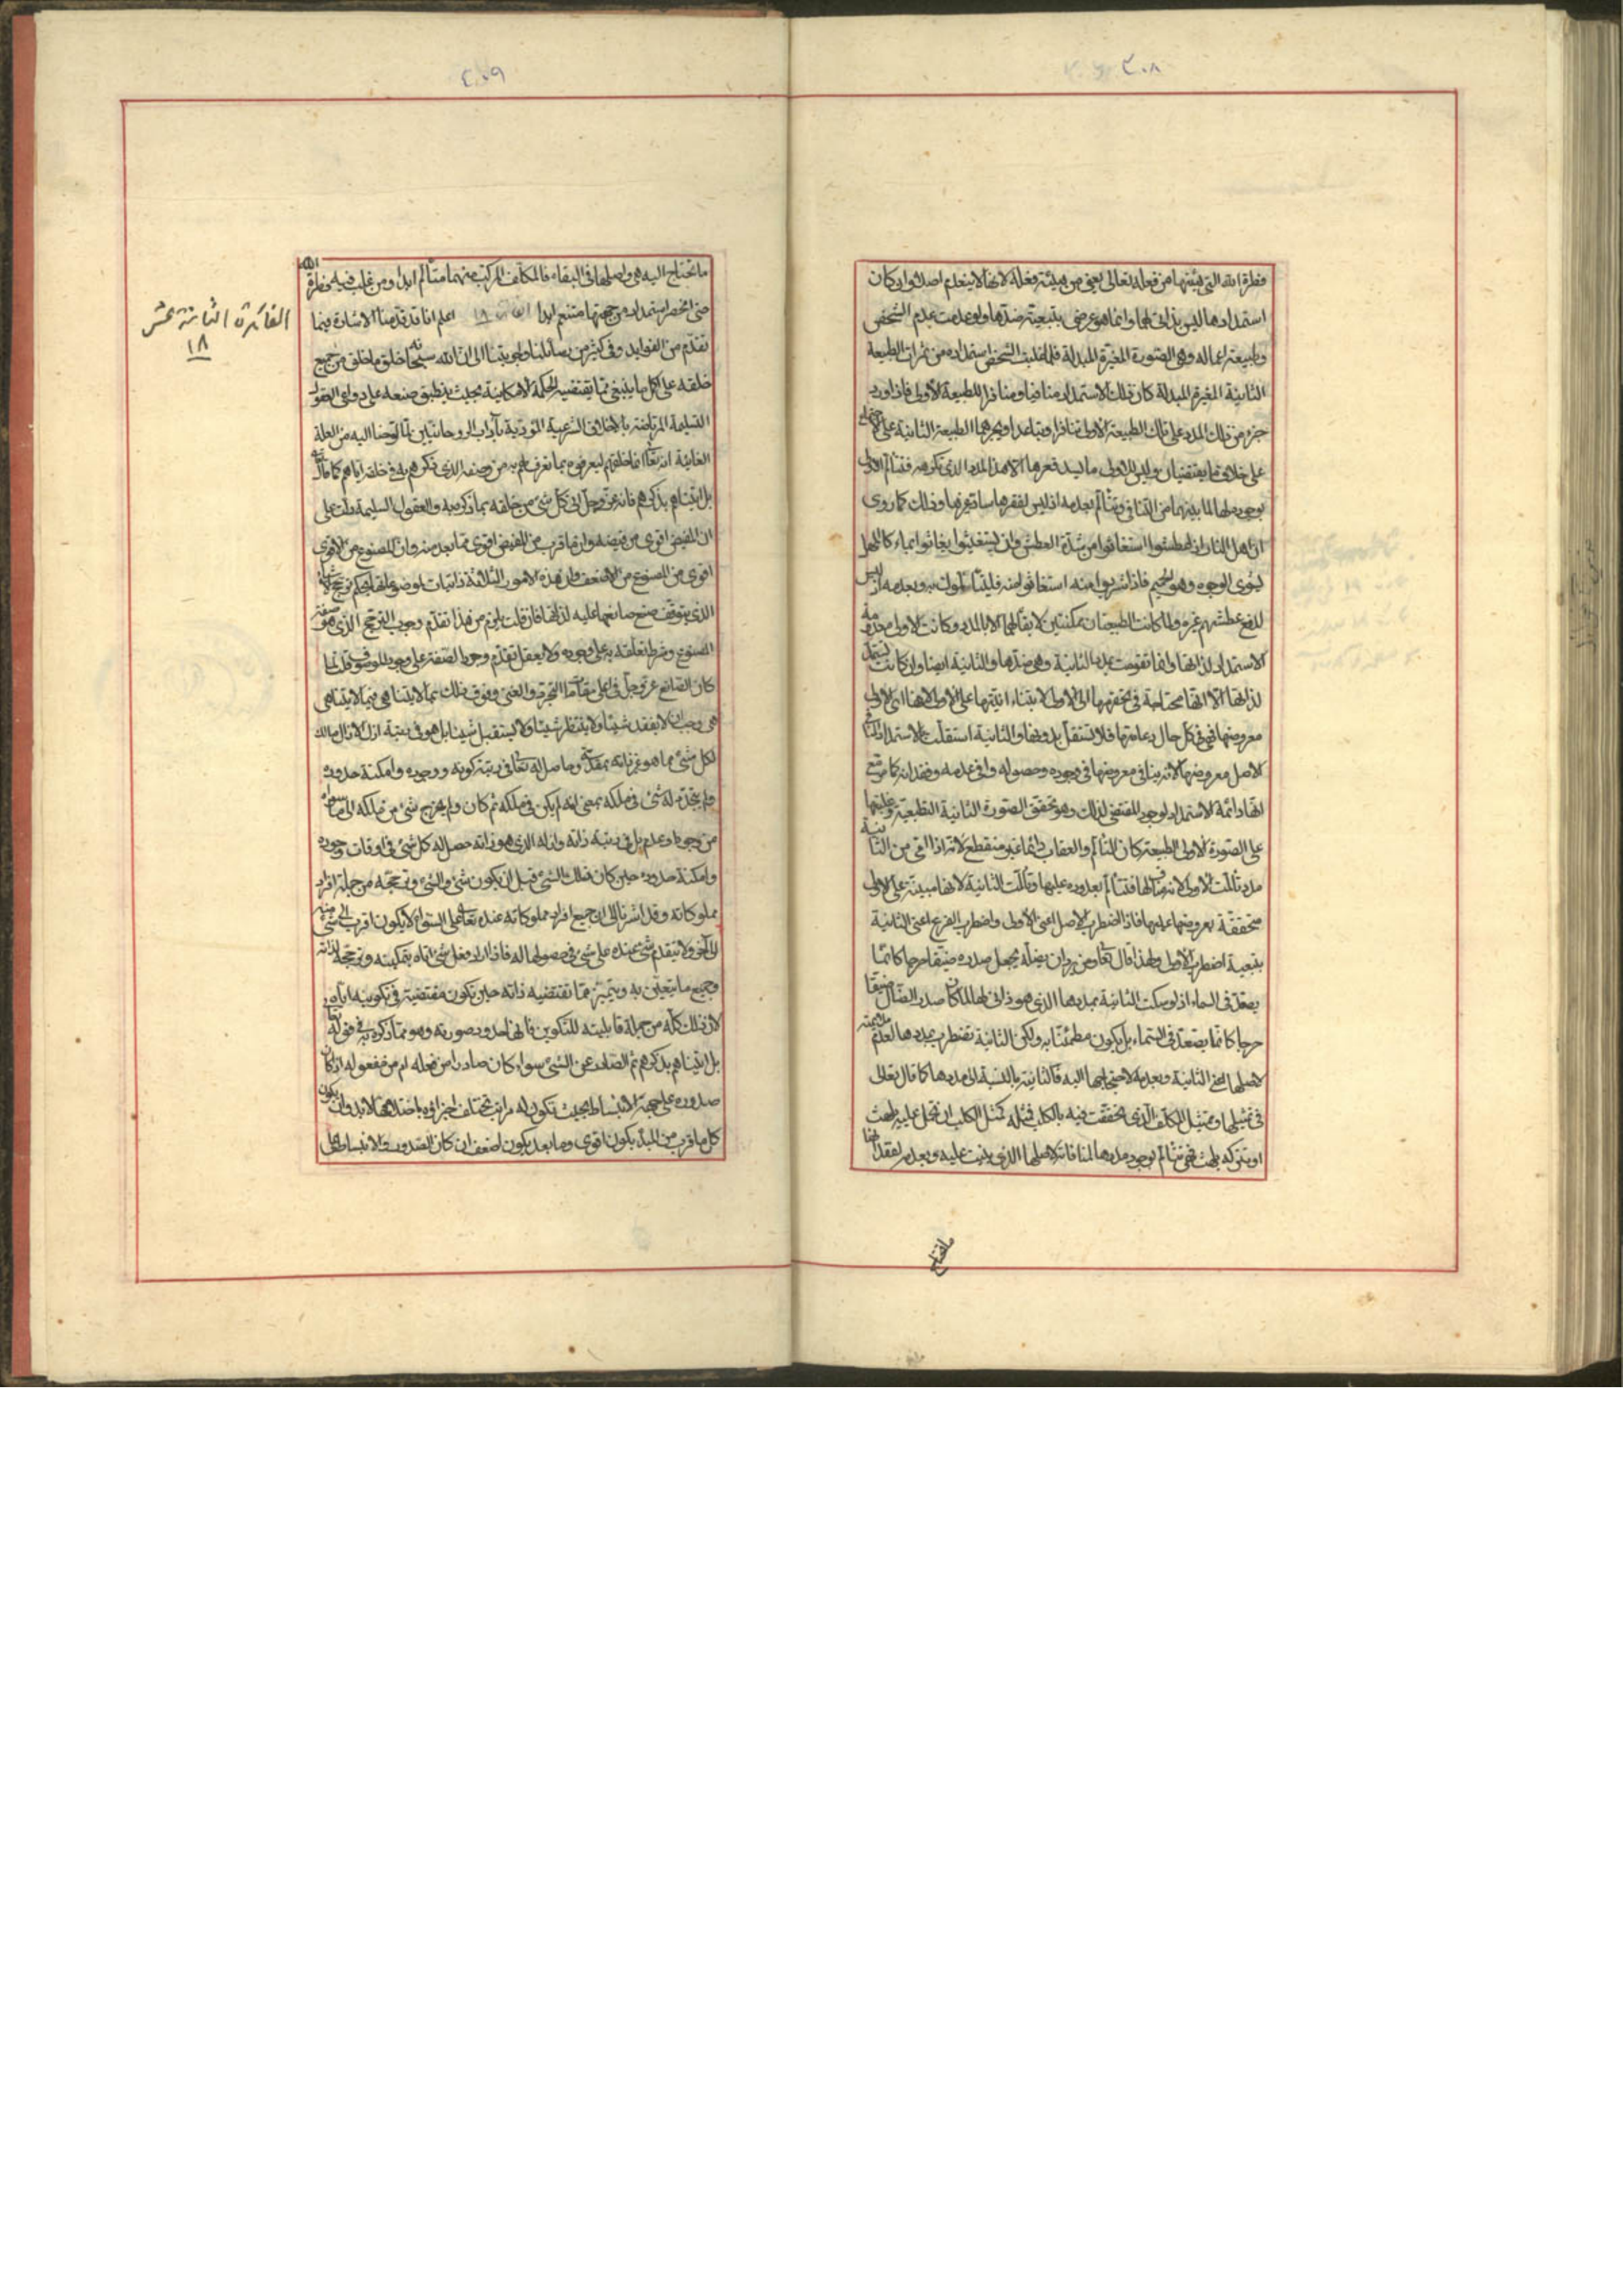 ٢٠٨
فطرة الله التي هيئتها من فعله تعالى يعني من هيئة فعله لانها لا ينعدم اصلا وان كان
استمدادها ليس بذاتي لها وانما هو عرضي بتبعية ضدها ولو عدمت عدم الشخص
وطبيعته اعماله وهي الصورة المغيرة المبدلة فلما غلبت الشخص استمداده من ثمرات الطبيعة
الثانية المغيرة المبدلة كان ذلك الاستمداد منافيا ومنافرا للطبيعة الاولى فاذا ورد
جزء من ذلك المدد على تلك الطبيعة الاولى تنافرا وتباعدا ويجرهما الطبيعة الثانية على
على خلاف ما يقتضيان وليس للاولى ما يسد فقرها الا هذا المدد الذي تكرهه فتتألم الاولى
بوجود مددها لما بينهما من التنافي وتتألم بعدمه اذ ليس لفقرها ساد غيرها وذلك كما روي
ان اهل النار اذا عطشوا استغاثوا من شدة العطش وان يستغيثوا يغاثوا بماء كالمهل
يشوي الوجوه وهو الحميم فاذا شربوا منه استغاثوا منه فليتألموا به وبعدمه اذ ليس
لدفع عطشهم غيره ولما كانت الطبيعتان ممكنتين لا بقاء لهما الا بالمدد وكانت الاولى
الاستمداد لذاتها وانما تقومت بمدد الثانية وهي ضدها والثانية ايضا وان كانت تستمد
لذاتها الا انها محتاجة في تحققها الى الاولى لابتناء انيتها على الاولى لانها
معروضها فهي في كل حال دعامتها فلا تستقل بدونها والثانية استقلت بالاستمداد
الاصل معروضها لانه ينافي معروضها في وجوده وحصوله وافى عدمه وفقدانه كما
انها دائمة الاستمداد لوجود المقتضي لذلك وهو تحقق الصورة الثانية الطبيعية وغلبتها
على الصورة الاولى الطبيعية كان التألم والعقاب دائما غير منقطع لانه اذا اتى من الثانية
مدد تألمت الاولى لانه مناف لها فتتألم بعد وروده عليها وتألمت الثانية لانها مبنية على الاولى
متحققة بعروضها عليها فاذا اضطرب الاصل اعني الاولى واضطرب الفرع اعني الثانية
بتبعية اضطراب الاولى ولهذا قال تعالى ومن يرد ان يضله يجعل صدره ضيقا حرجا كانما
يصعد في السماء اذ لو سكنت الثانية بمددها الذي هو ذاتي لها لما كان صدر الضال ضيقا
حرجا كانما يصعد في السماء بل يكون مطمئنا به ولكن الثانية تضطرب بمددها لعدم ملايمته
لاصلها اعني الثانية وبعدمه لاحتياجها اليه فالثانية بالنسبة الى مددها كما قال تعالى
في تمثيلها وتمثيل المكلف الذي تحققت فيه بالكلب فمثله كمثل الكلب ان تحمل عليه يلهث
او تتركه يلهث فهي تتألم بوجود مددها لمنافاته لاصلها الذي بنيت عليه وبعدمه لفقدانها
ما تحتاج
٢٠٩
ما تحتاج اليه هي واصلها في البقاء فالمكلف المركب منهما متألم ابدا ومن غلب فيه فطرة الله
حتى انحصر استمداده من جهتها متنعم ابدا ١٨ اعلم انا قد قدمنا الاشارة فيما
تقدم من الفوايد وفي كثير من رسائلنا واجوبتنا الى ان الله سبحانه خلق ما خلق من جميع
خلقه على اكمل ما ينبغي مما تقتضيه الحكمة الامكانية بحيث ينطبق صنعه على دواعي العقول
السليمة المرتاضة بالاخلاق الشرعية المؤدبة بآداب الروحانيين لما اوضحنا اليه من العلة
الغائية انه تعالى انما خلقهم ليعرفوه بما تعرف لهم به من وصفه الذي ذكرهم به في خلقه اياهم كما قال تعالى
بل اتيناهم بذكرهم فانه عز وجل اتى كل شئ من خلقه بما ذكره به والعقول السليمة دلت على
ان المفيض اقوى من فيضه وان ما قرب من المفيض اقوى مما بعد منه وان المصنوع من الاقوى
اقوى من المصنوع من الاضعف وان هذه الامور الثلاثة ذاتيات
الذي يتوقف صنع صانعها عليه لذاتها فان قلت يلزم من هذا تقدم وجوب الترجح الذي هو صفة
المصنوع وشرط تعلقه به على وجوده ولا يعقل تقدم وجود الصفة على وجود الموصوف قلت لما
كان الصانع عز وجل في اعلى مقامات التجرد والغنى وفوق ذلك بما لا يتناهى فيما لا يتناهى
وجب ان لا يفقد شيئا ولا ينتظر شيئا ولا يستقبل شيئا بل هو في رتبة ازل الازال مالك
لكل شئ مما هو غير ذاته وحاصل له تعالى في رتبة كونه ووجوده وامكنة حدوده
ولم يتجدد له شئ في ملكه بمعنى انه لم يكن في ملكه ثم كان ولم يخرج شئ من ملكه الى ما سواه
من وجود وعدم بل في رتبة ذاته وازله الذي هو ذاته حصل له كل شئ في اوقات وجوده
وامكنة حدوده حين كان ذلك الشئ قبل ان يكون شئ والشئ وترجحه من جملة افراد
مملوكاته وقد اشرنا الى ان جميع افراد مملوكاته عنده تعالى على السواء لا يكون اقرب الى شئ منه
الى آخر ولا يتقدم شئ عنده على شئ في حصولها له فاذا اراد فعل شئ اتاه بتمكينه وترجحه لذاته
وجميع ما يتعين به ويتميز مما تقتضيه ذاته حين تكون مقتضية في تكوينه اياه
لان ذلك كله من جملة قابليته للتكوين فانها حدود صورته وهو مما ذكره به في قوله تعالى
بل اتيناهم بذكرهم ثم الصادر عن الشئ سواء كان صادرا من فعله ام من مفعوله اذا كان
صدوره على جهة الانبساط بحيث تكون له مراتب تختلف اجزاؤه باختلافها لا بد وان يكون
كل ما قرب من المبدء يكون اقوى وما بعد يكون اضعف ان كان الصدور والانبساط على
الفائدة الثامنة عشر
١٨